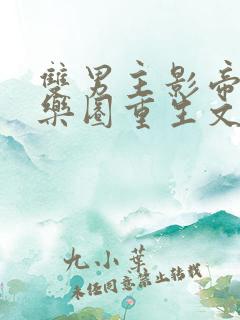 雙男主影帝
樂圈重生文
九小葉
未經同意禁止轉載